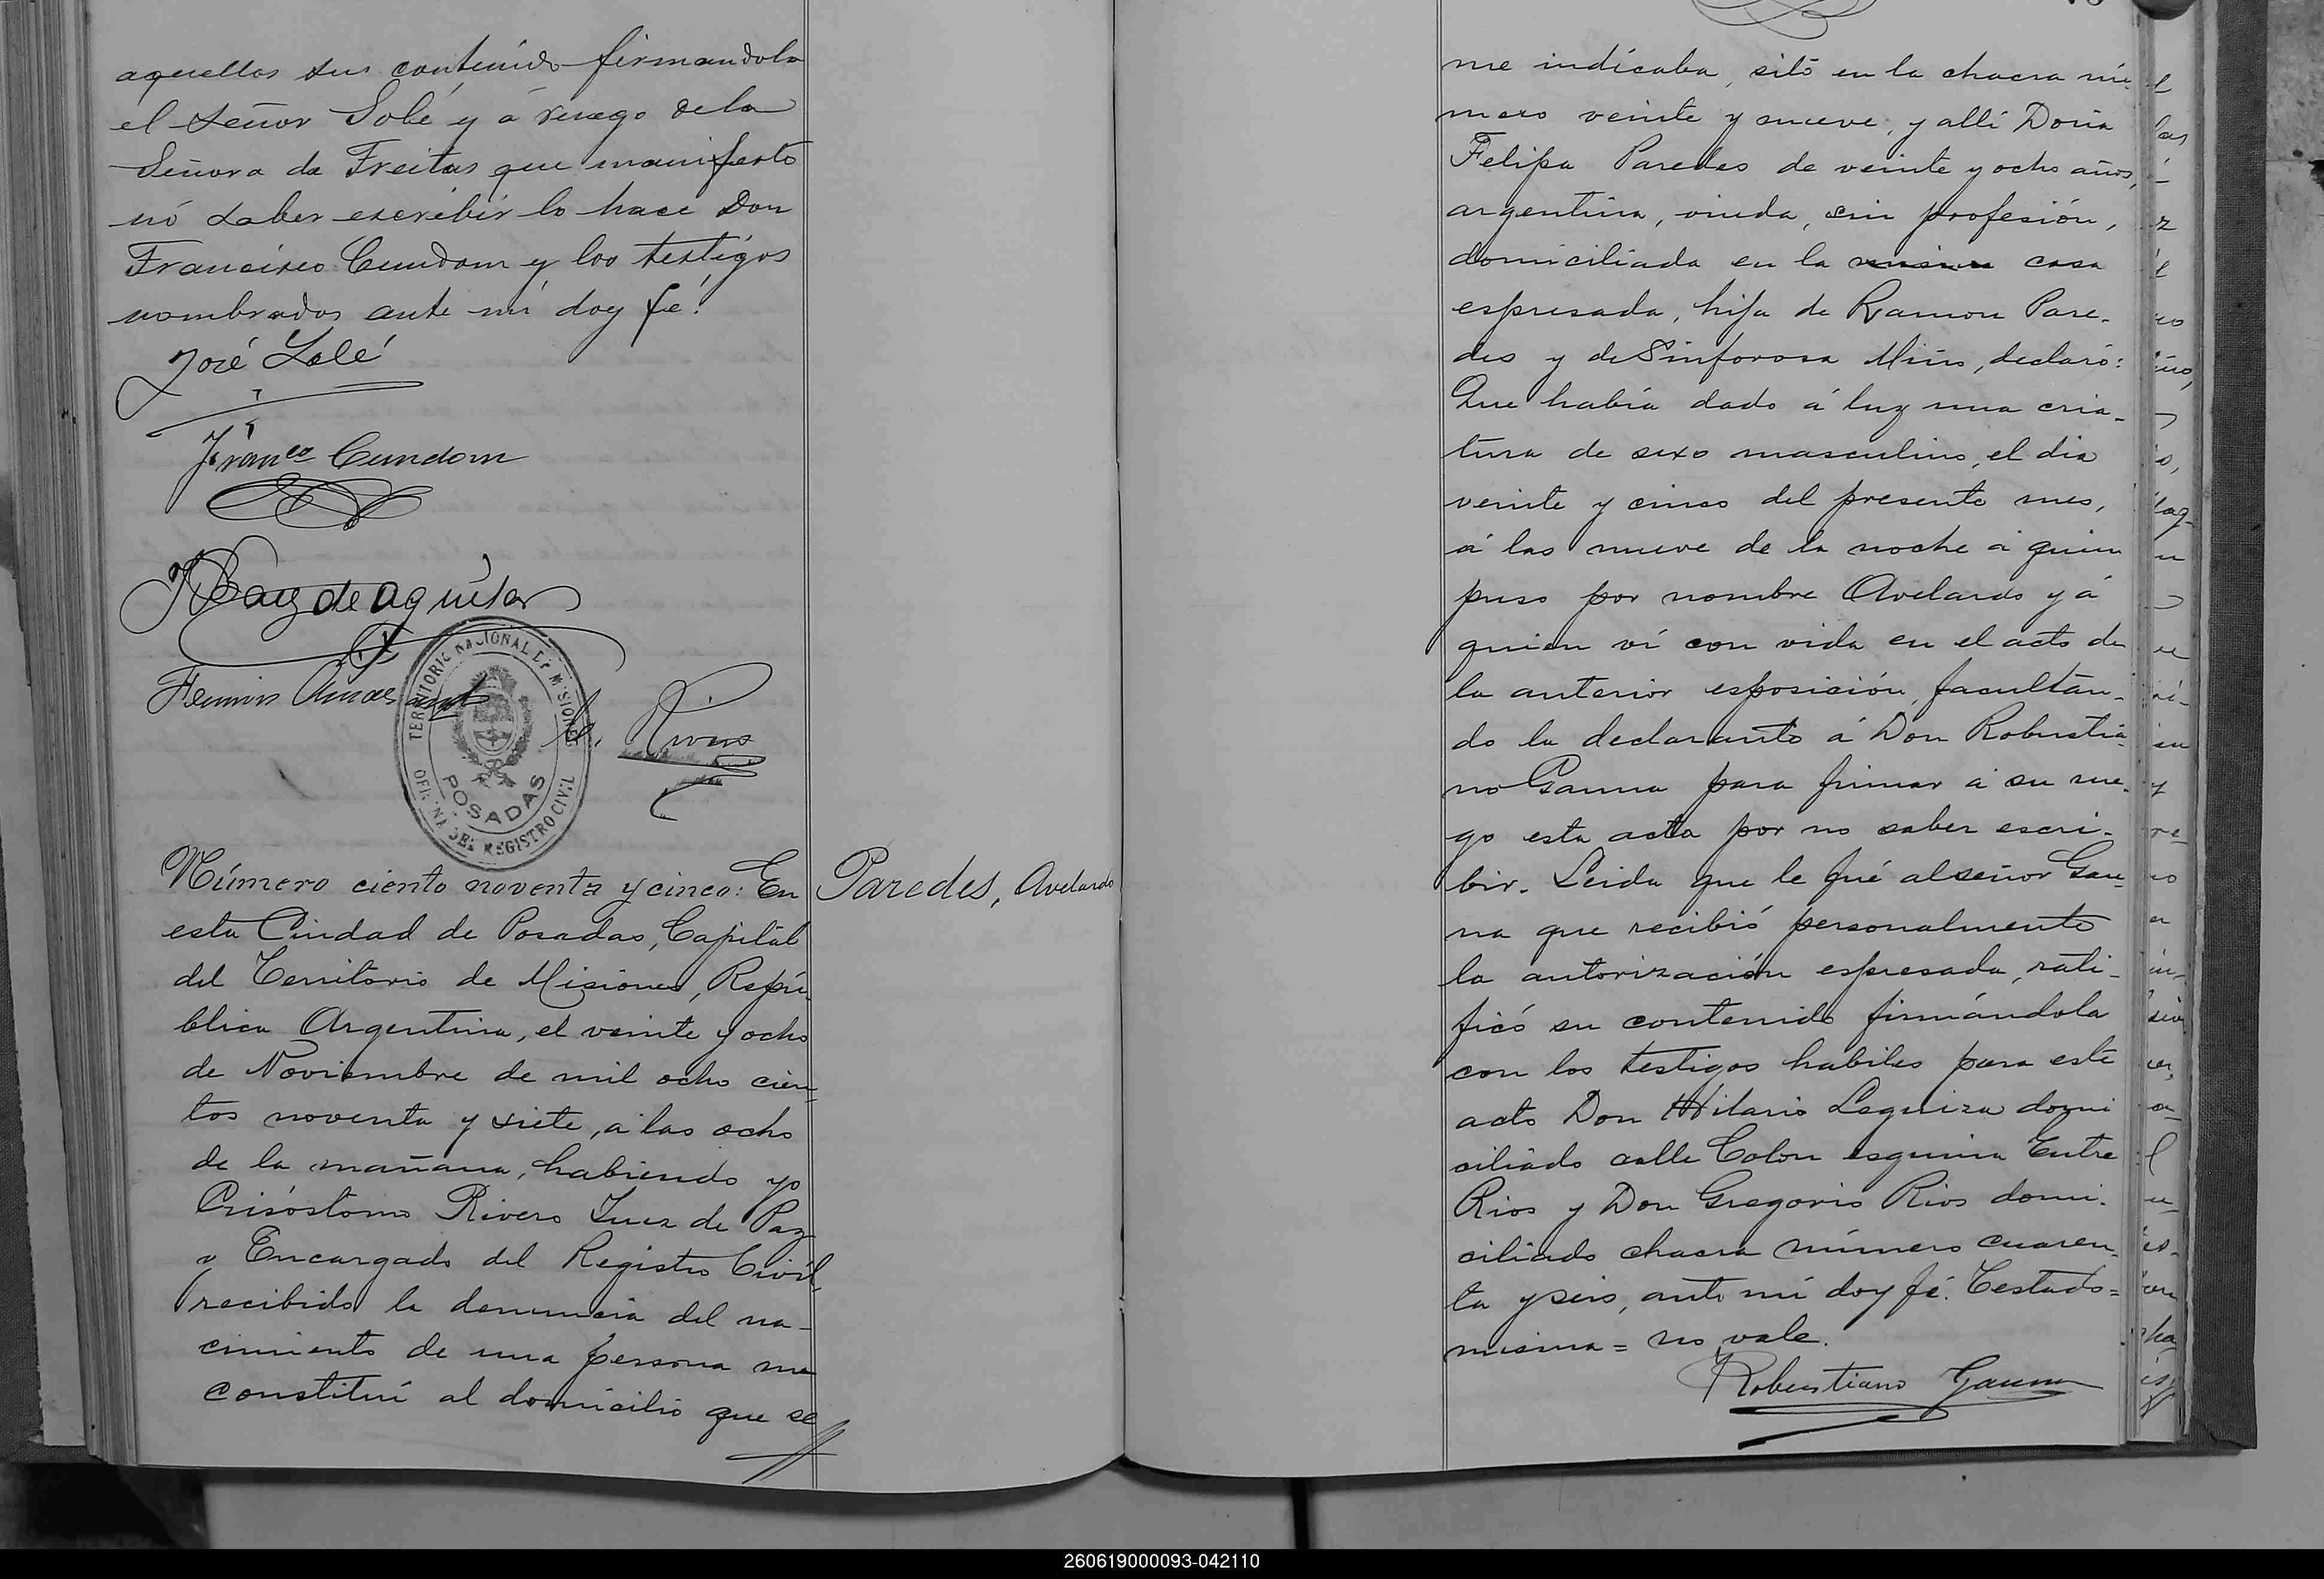 aquellos su contenido firmandola
el Señor Solé y á ruego de la
Señora de Freitas que manifesto
nó saber escribir lo hace Don
Francisco Cundom y los testigos
nombrados ante mí doy fé.
José Solé
Franco Cundom
Baez de aguilar
Fermin
Rivero
TERRITORIO NACIONAL DE MISIONES
OFICINA DEL REGISTRO CIVIL
POSADAS
Número ciento noventa y cinco: En
Paredes, Avelardo
esta Ciudad de Posadas, Capital
del Territorio de Misiones, Repú-
blica Argentina, el veinte y ocho
de Noviembre de mil ocho cien-
tos noventa y siete, a las ocho
de la mañana, habiendo yo
Crisóstomo Rivero Juez de Paz
y Encargado del Registro Civil,
recibido la denuncia del na-
cimiento de una persona me
constituí al domicilio que se
me indicaba, sitó en la chacra nú-
mero veinte y nueve, y allí Doña
Felipa Paredes de veinte y ocho años,
argentina, viuda, sin profesión,
domiciliada en la misma casa
espresada, hija de Ramon Pare-
des y de Sinforosa Miño, declaró:
Que había dado á luz una cria-
tura de sexo masculino, el dia
veinte y cinco del presente mes,
á las nueve de la noche á quien
puso por nombre Avelardo y á
quien ví con vida en el acto de
la anterior esposición, facultan-
do la declarante á Don Robustia-
no Gauna para firmar á su rue-
go esta acta por no saber escri-
bir. Leida que le fué al señor Gau-
na que recibió personalmente
la autorización espresada, rati-
ficó su contenido firmándola
con los testigos habiles para este
acto Don Hilario Leguiza domi
ciliado calle Colon esquina Entre
Rios y Don Gregorio Rios domi-
ciliado chacra número cuaren-
ta y seis, ante mí doy fé. Testado=
misma = no vale.
Robustiano Gauna
260619000093-042110